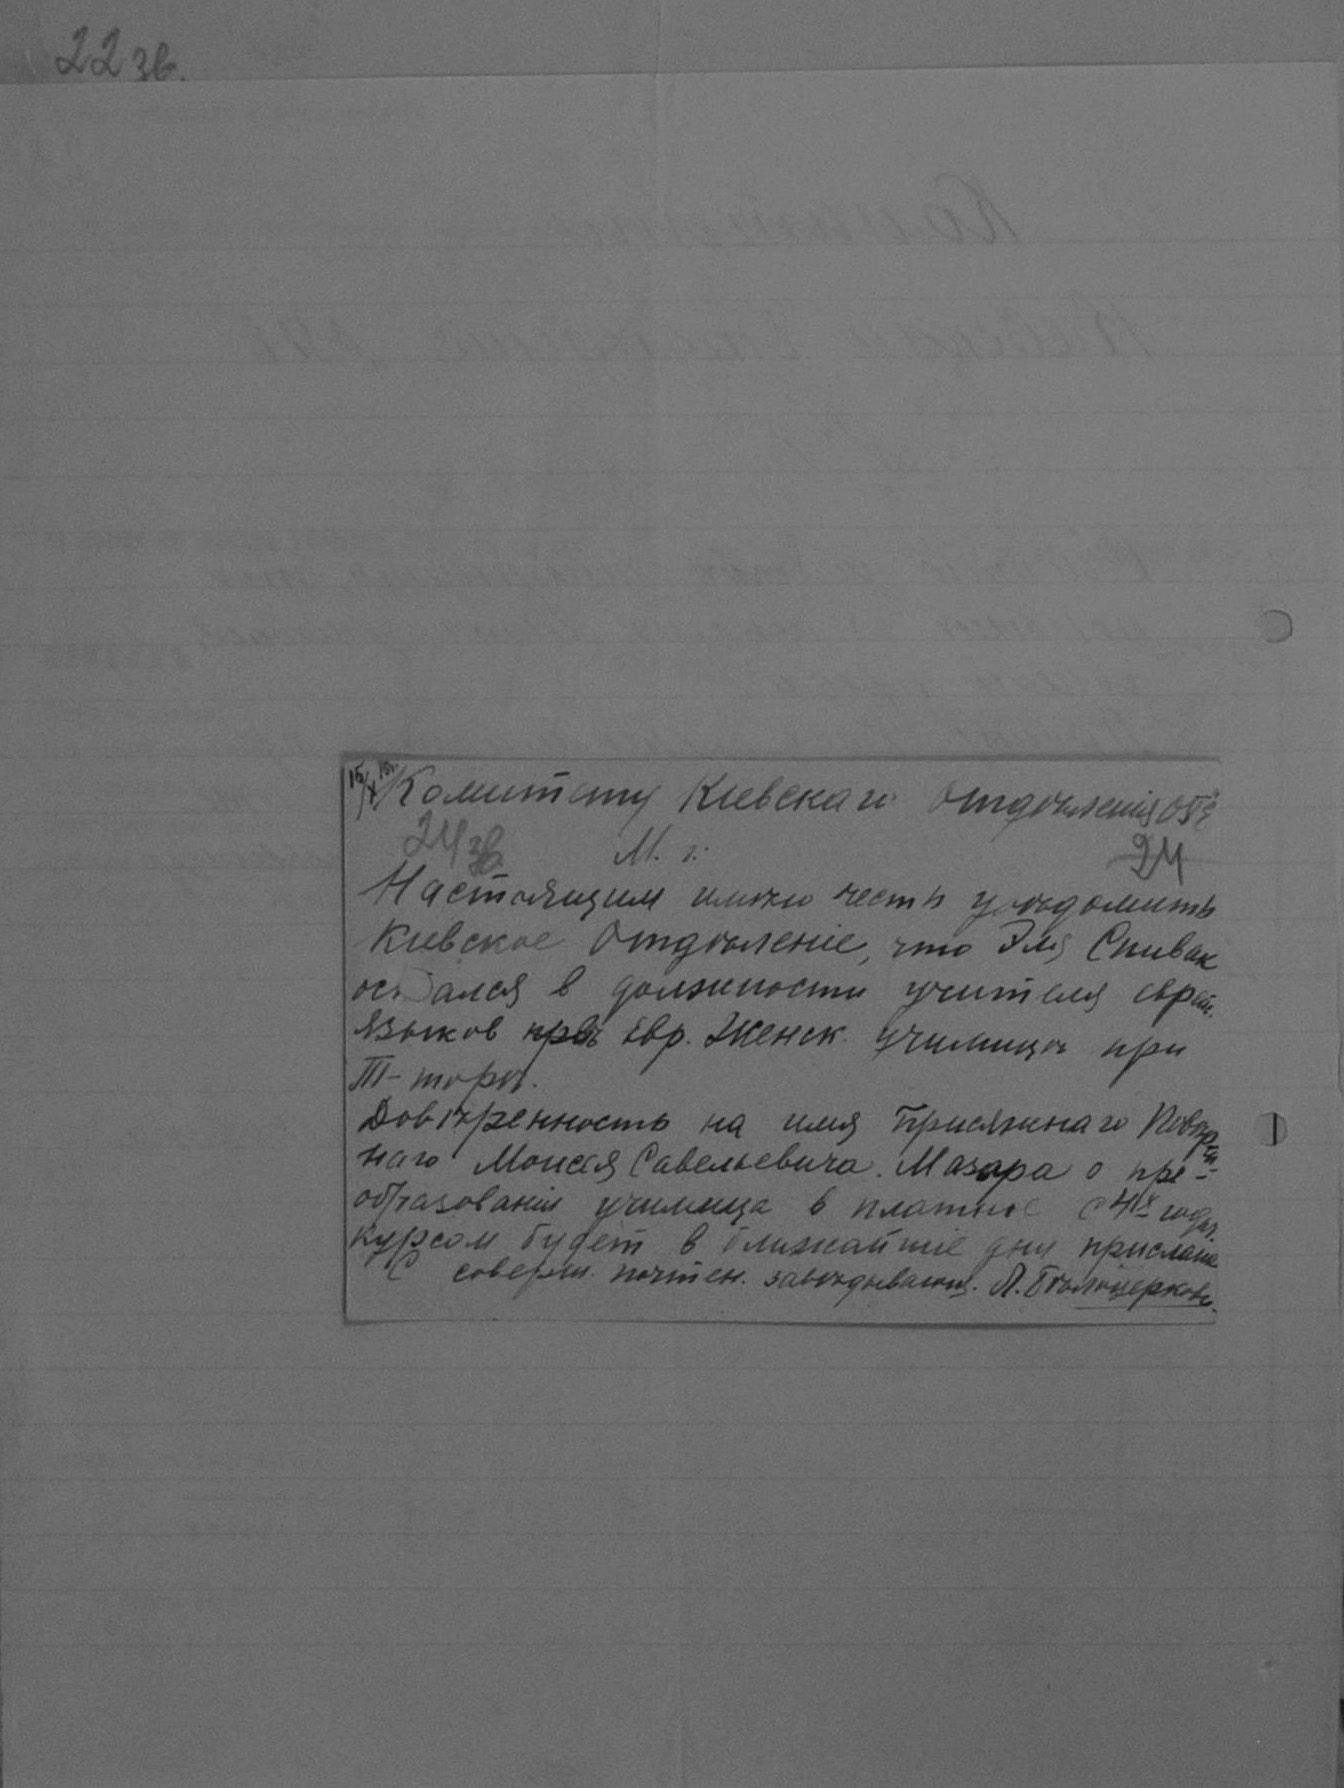 22 зв.
15/X 10г.
Комитету Киевскаго Отдѣленія ОПЕ
24 зв.
М. г.
24
Настоящим имѣю честь увѣдомить
Киевское Отдѣленіе, что Эля Спивак
остался в должности учителя еврейск.
языков при Евр. Женск. училищѣ при
Т-торѣ.
Довѣренность на имя Присяжнаго Повѣрен-
наго Моисея Савельевича Мазора о пре-
образованіи училища в платное с 4х годич.
курсом будет в ближайшіе дни прислана
С соверш. почтен. завѣдывающ. Л. Бѣлоцерковс.